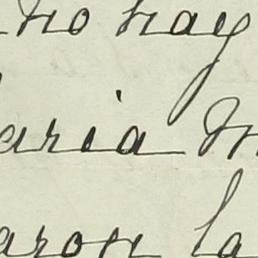 no hay
aria
aron la